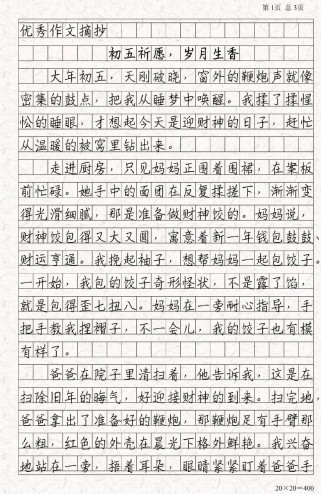 第1页 总3页
优秀作文摘抄
初五祈愿，岁月生香
大年初五，天刚破晓，窗外的鞭炮声就像
密集的鼓点，把我从睡梦中唤醒。我揉了揉惺
忪的睡眼，才想起今天是迎财神的日子，赶忙
从温暖的被窝里钻出来。
走进厨房，只见妈妈正围着围裙，在案板
前忙碌。她手中的面团在反复揉搓下，渐渐变
得光滑细腻，那是准备做财神饺的。妈妈说，
财神饺包得又大又圆，寓意着新一年钱包鼓鼓、
财运亨通。我挽起袖子，想帮妈妈一起包饺子。
一开始，我包的饺子奇形怪状，不是露了馅，
就是包得歪七扭八。妈妈在一旁耐心指导，手
把手教我捏褶子，不一会儿，我的饺子也有模
有样了。
爸爸在院子里清扫着，他告诉我，这是在
扫除旧年的晦气，好迎接财神的到来。扫完地，
爸爸拿出了准备好的鞭炮，那鞭炮足有手臂那
么粗，红色的外壳在晨光下格外鲜艳。我兴奋
地站在一旁，捂着耳朵，眼睛紧紧盯着爸爸手
20×20=400